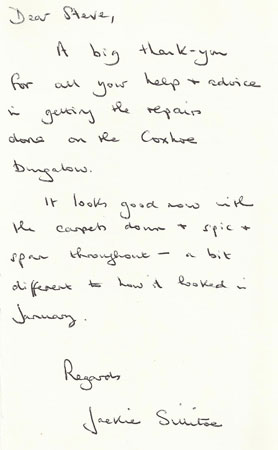 Dear Steve,
A big thank-you
for all your help + advice
in getting the repairs
done on the Coxhoe
Bungalow.
It looks good now with
the carpets down + spic +
span throughout – a bit
different to how it looked in
January.
Regards
Jackie Sillitoe